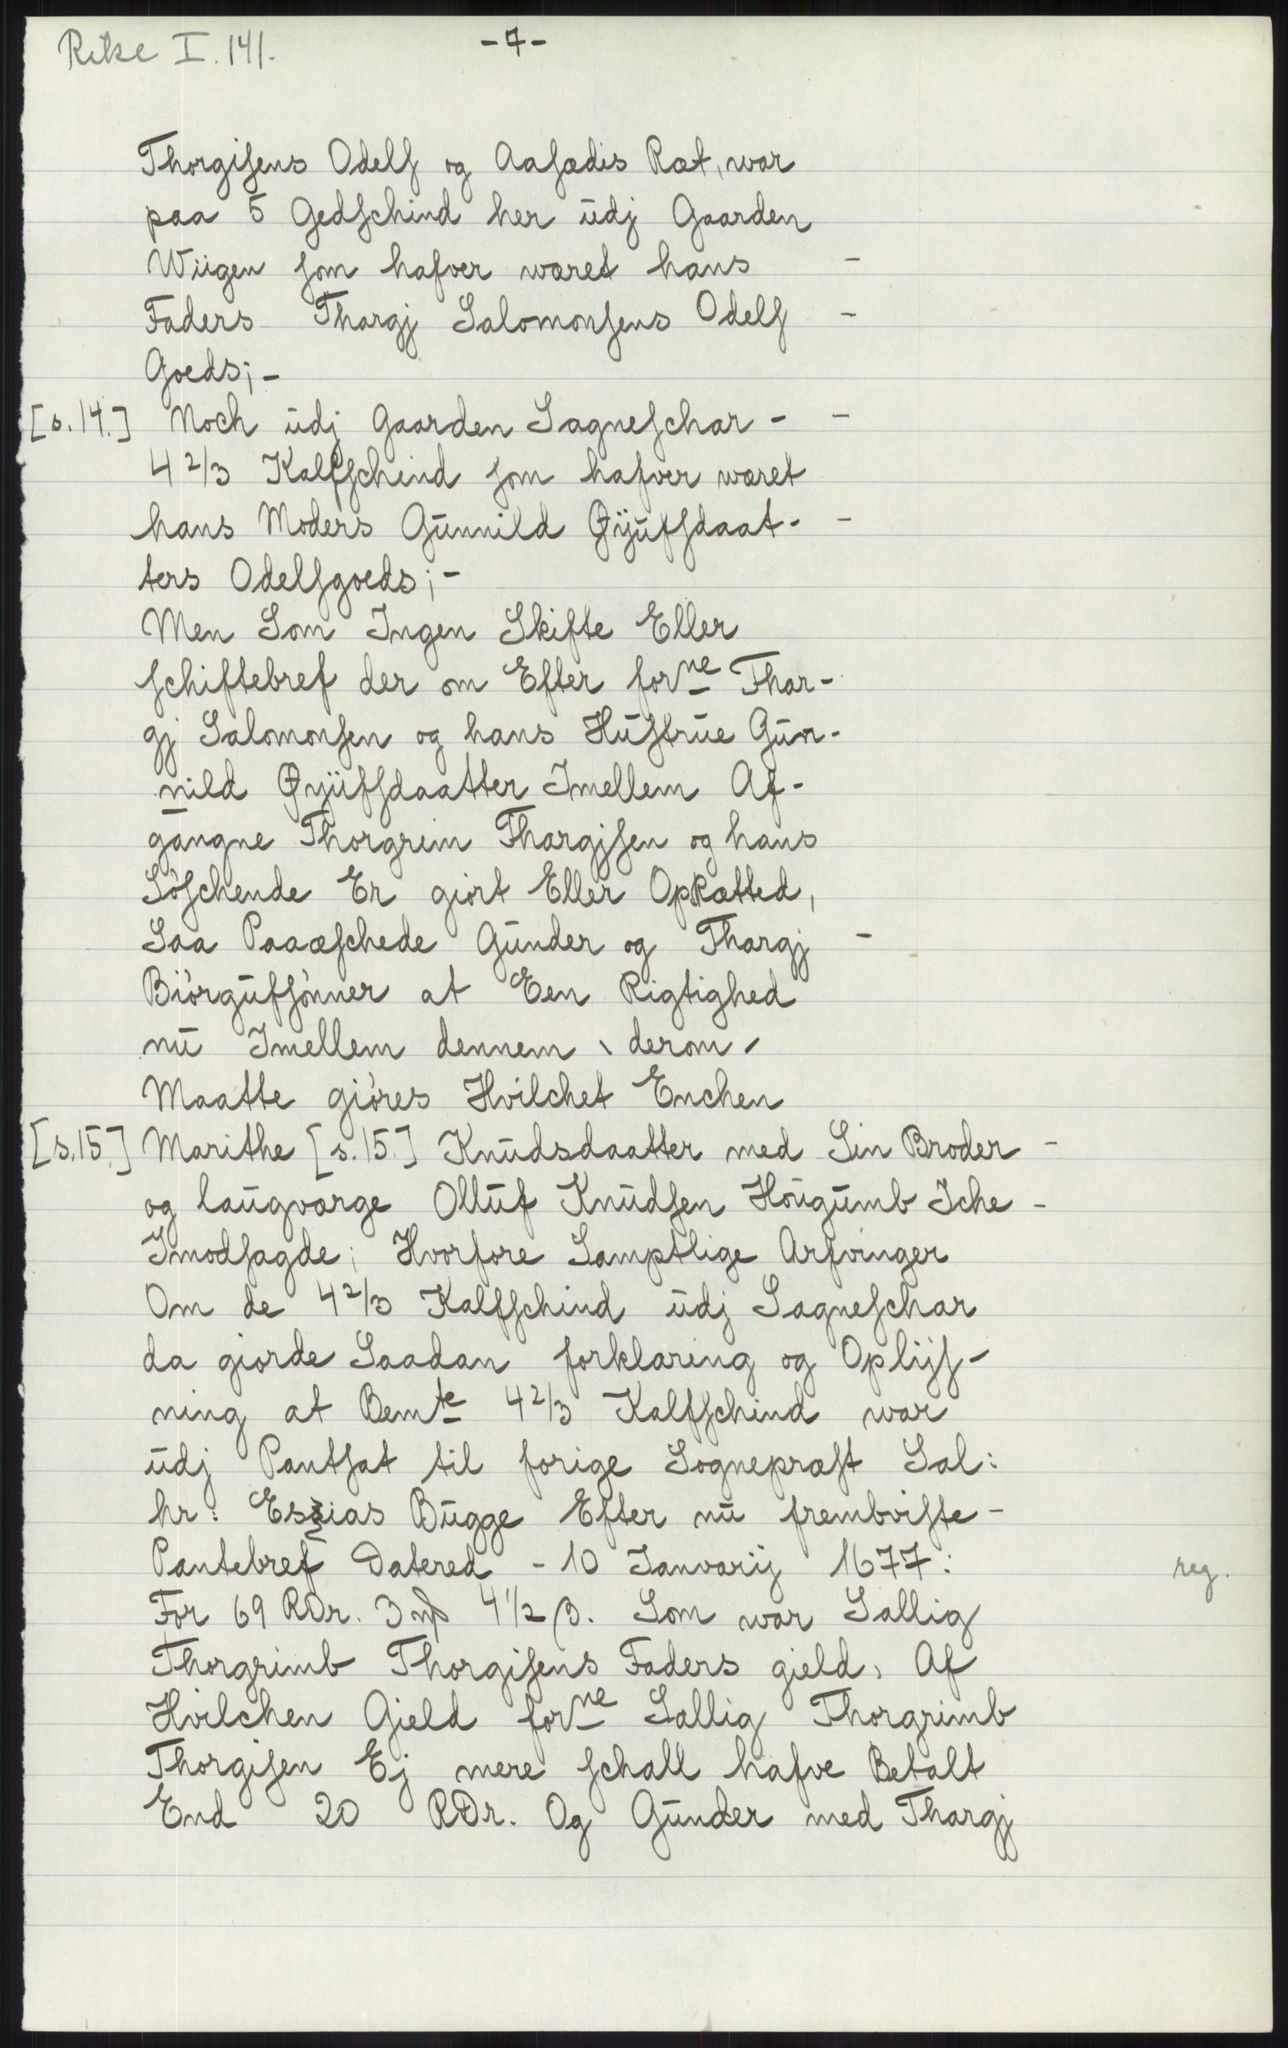 Rike I. 141.
- 7 -
Thorgisens Odels og Aasædis Ræt, war
paa 5 Gedschind her udj Gaarden
Wiigen som hafver wæret hans -
Faders Thargj Salomonsens Odels -
Goeds; -
[s. 14.] Noch udj Gaarden Sagneschar - -
4 2/3 Kalfschind som hafver wæret
hans Moders Gunnild Øÿufsdaat- -
ters Odelsgoeds; -
Men Som Ingen Skifte Eller
schiftebref der om Efter forne Thar-
gj Salomonsen og hans Hustrue Gun-
nild Øyüfsdaatter Imellem Af-
gangne Thorgrim Thargjsen og hans
Söschende Er giort Eller OpRætted,
Saa Paaæschede Gunder og Thargj -
Biörgufsönner at Een Rigtighed
nu Imellem dennem, derom,
Maatte giöres Hvilchet Enchen
[s. 15.] Marithe [s. 15.] Knudsdaatter med Sin Broder -
og laugværge Olluf Knudsen Hougumb Iche -
Imodsagde; Hvorfore Samptlige Arfvinger
Om de 4 2/3 Kalfschind udj Sagneschar
da giorde Saadan forklaring og Oplijs-
ning at Bemte 4 2/3 Kalfschind war
udj Pantsat til forige Sognepræst Sal:
hr: Esaias Bugge Efter nu frembviste -
Pantebref Datered - 10 Janvarij 1677: reg.
For 69 RDr. 3 mk 4 1/2 β. Som war Sallig
Thorgrimb Thorgisens Faders gield, Af
Hvilchen Gield forne Sallig Thorgrimb
Thorgisen Ej mere schall hafve Betalt
End 20 RDr. Og Gunder med Thargj